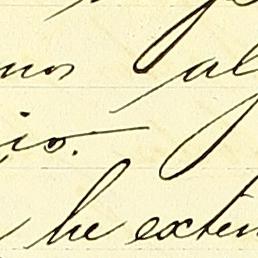 nos al
io.
he exten